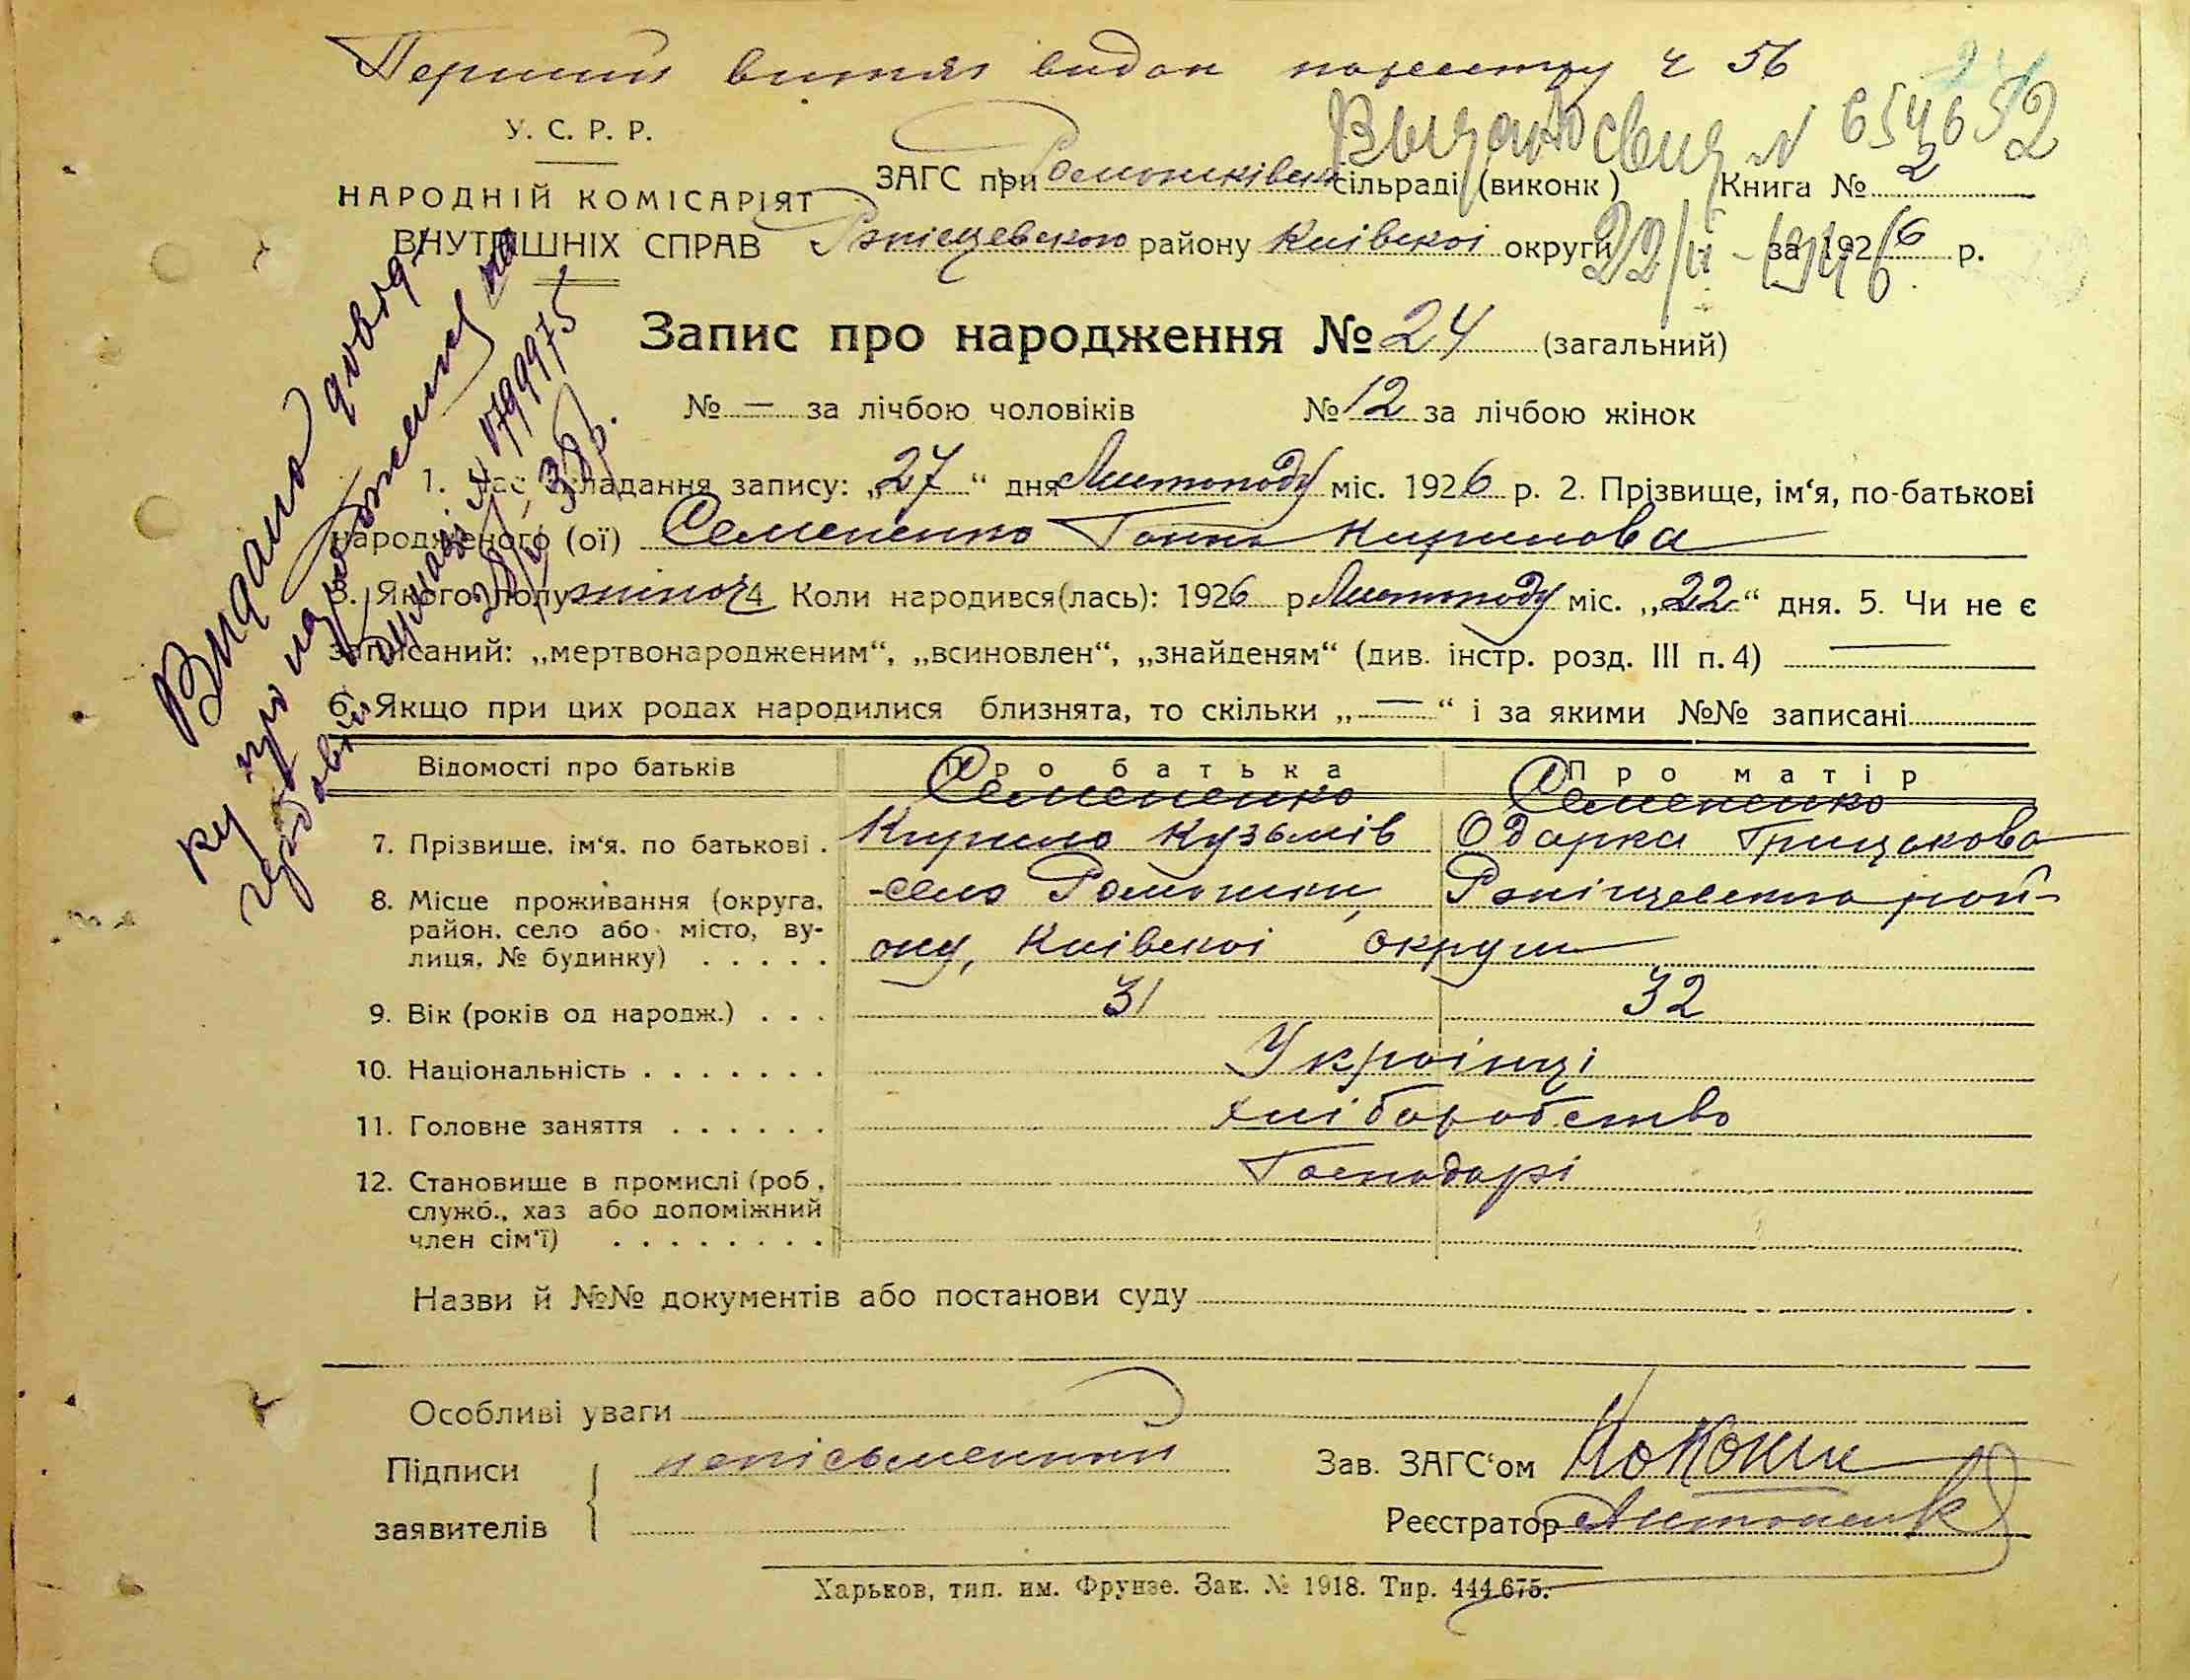 Перший витяг видан пореестру ч 56
У. С. Р. Р.
НАРОДНІЙ КОМІСАРІЯТ
ВНУТРІШНІХ СПРАВ
Выдано свид N 654652
22/II - 1946
ЗАГС при Ромашківськ сільраді (виконк) Книга № 2
Ржищевського району Київскоі округи за 1926 р.
Видано довід-
ку про народження на
гербовій бумазі № 0799975
Запис про народження № 24 (загальний)
№ — за лічбою чоловіків № 12 за лічбою жінок
1. Час складання запису: „27“ дня Листопаду міс. 1926 р. 2. Прізвище, ім‘я, по-батькові
народженого (ої) Семененко Ганна Кирилова
3. Якого полу жіноч 4 Коли народився(лась): 1926 р. Листопаду міс. „22“ дня. 5. Чи не є
записаний: „мертвонародженим“, „всиновлен“, „знайденям“ (див. інстр. розд. III п. 4) —
6. Якщо при цих родах народилися близнята, то скільки „—“ і за якими №№ записані
Відомості про батьків Про батька Про матір
Семененко Семененко
7. Прізвище, ім‘я, по батькові . Кирило Кузьмів Одарка Грицакова
8. Місце проживання (округа, село Ромашки, Ржіщевського рай-
район, село або місто, ву- ону, Київскоі округи
лиця, № будинку) . . . . .
9. Вік (років од народж.) . . . 31 32
10. Національність . . . . . . . Українці
11. Головне заняття . . . . . . Хліборобство
12. Становище в промислі (роб., Господарі
служб., хаз або допоміжний
член сім‘ї) . . . . . . . .
Назви й №№ документів або постанови суду
Особливі уваги
Підписи неписьменний Зав. ЗАГС‘ом
заявителів Реєстратор Антоненко
Харьков, тип. им. Фрунзе. Зак. № 1918. Тир. 444.675.